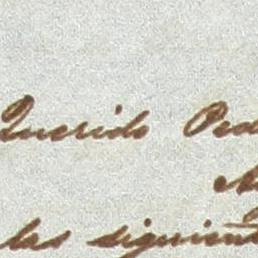 Querido Ped
las siguiente